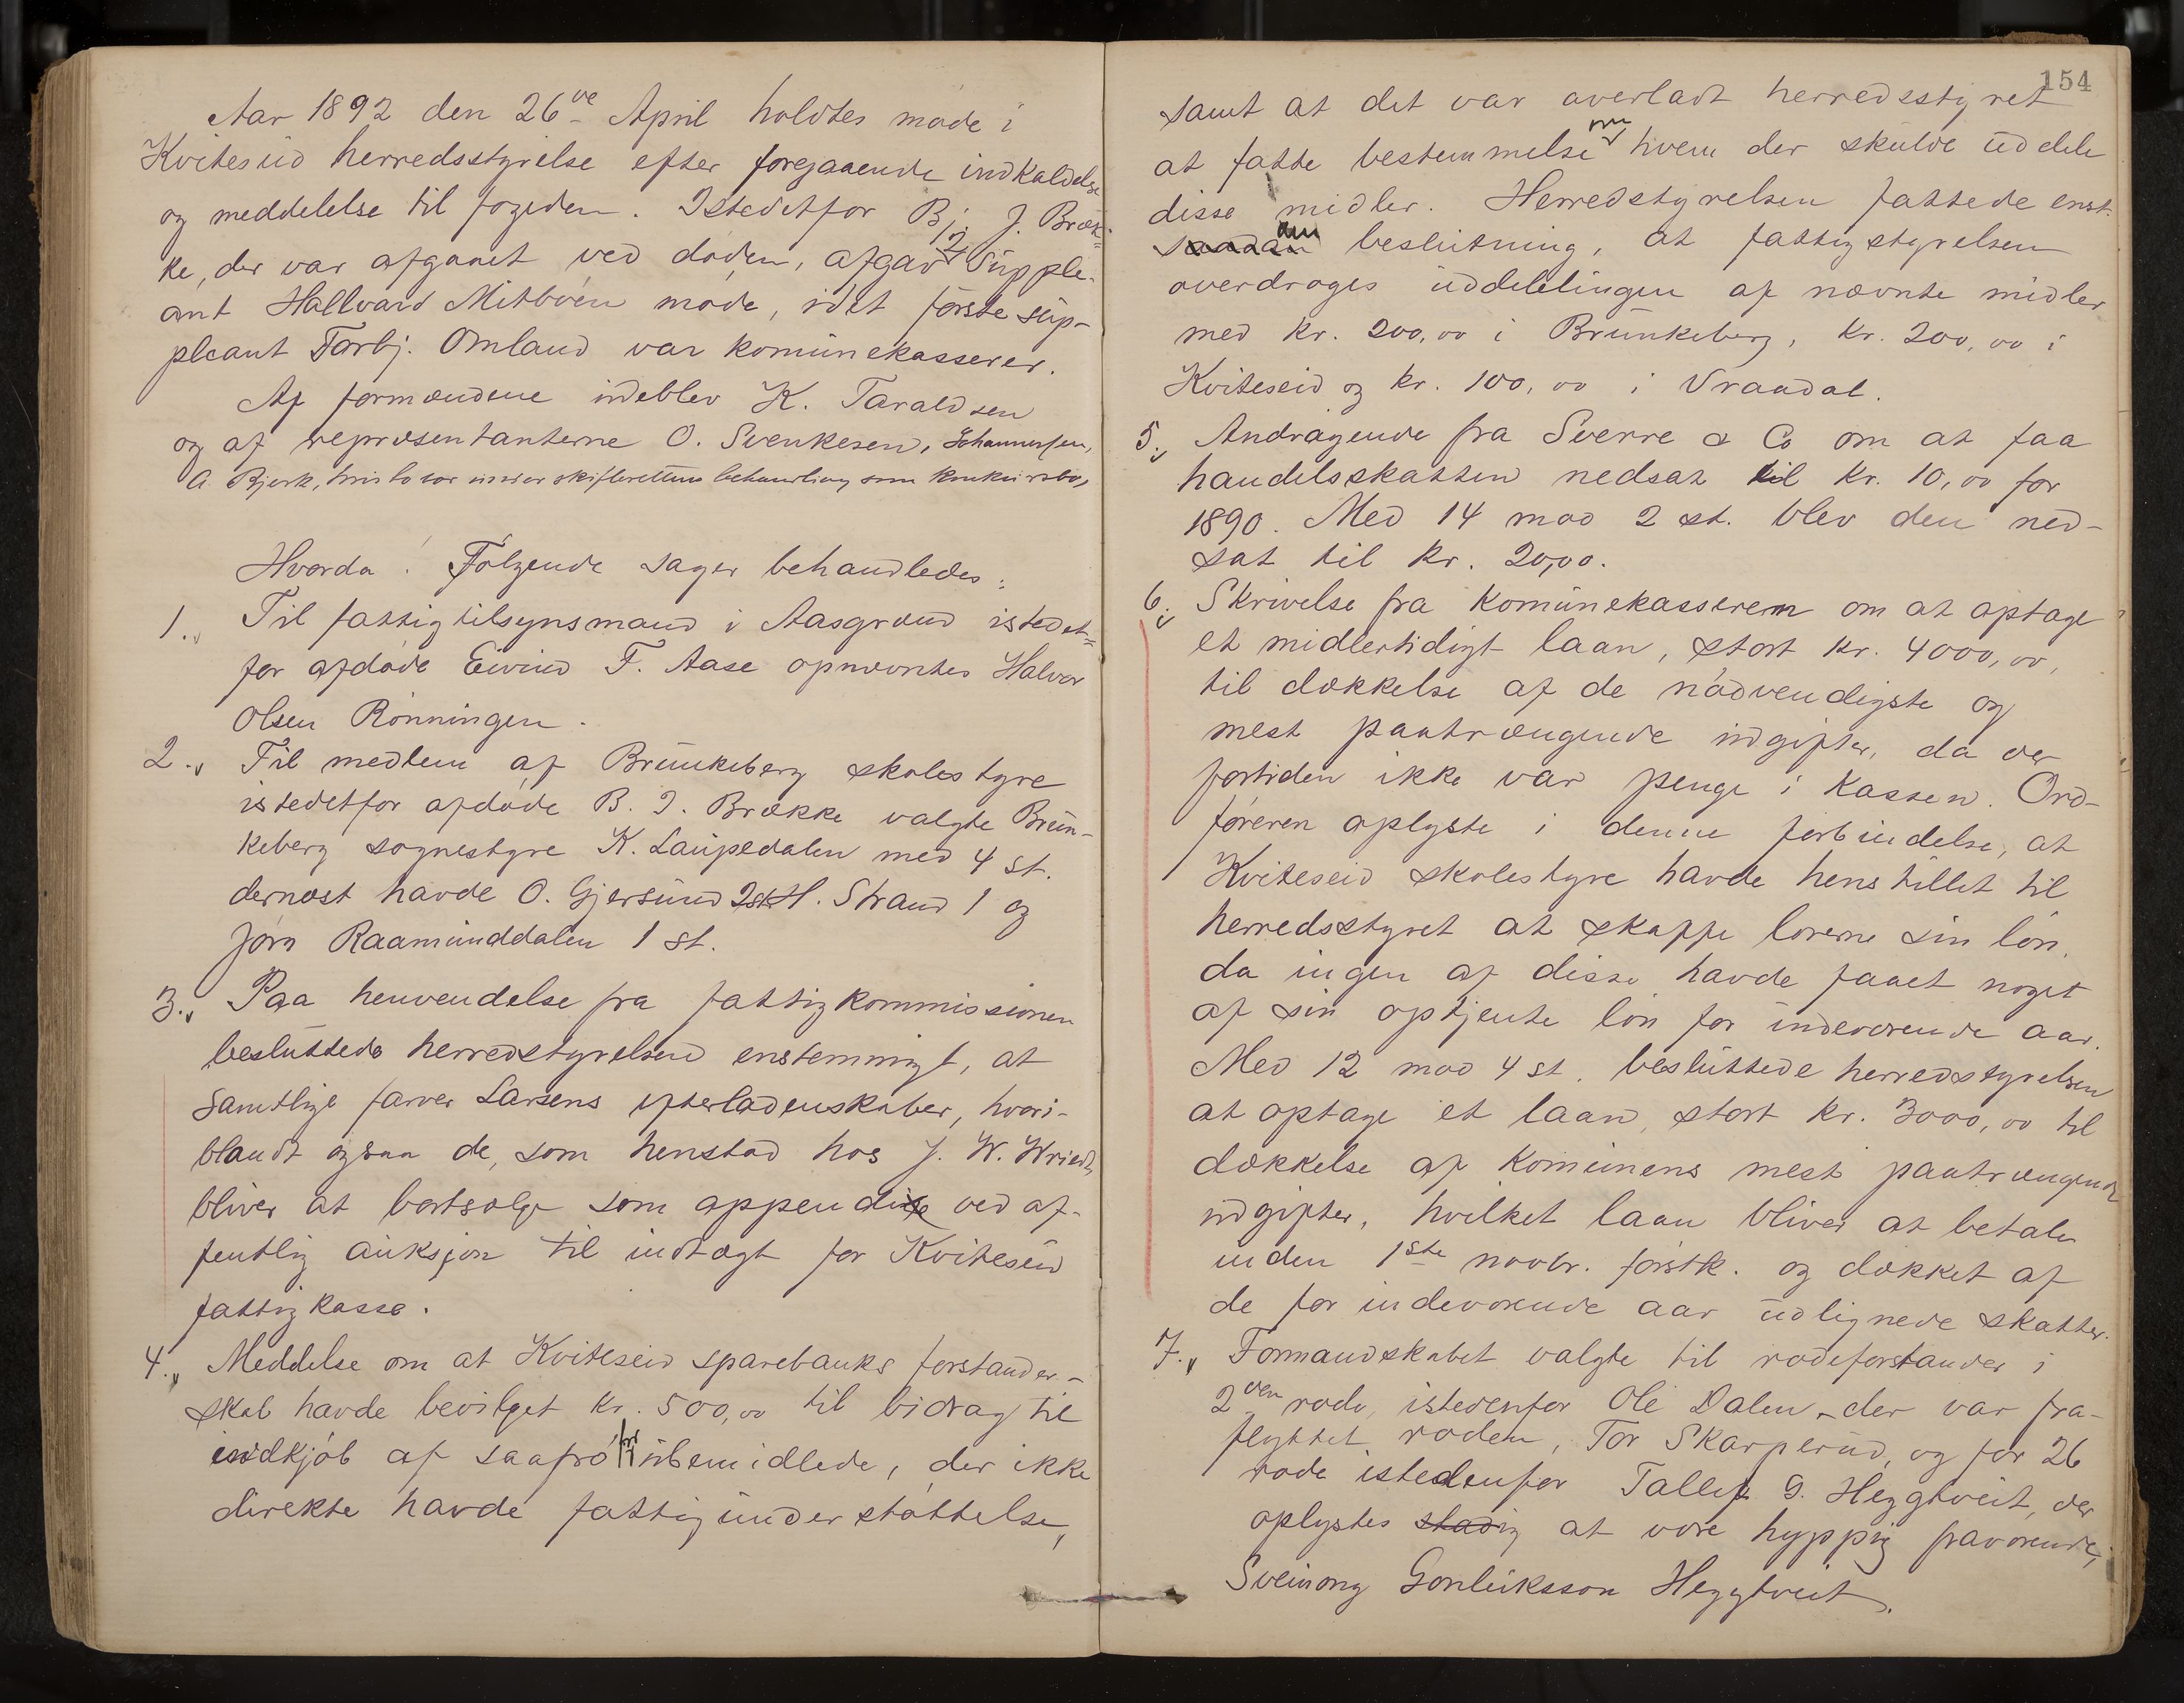 Aar 1892 den 26de April holdtes møde i
Kviteseid herredsstyrelse efter foregaaende indkaldelse
og meddelelse til fogden. Istedetfor Bj. J. Bræk=
ke, der var afgaaet ved døden, afgav 2 supple-
ant Hallvard Mitbøen møde, idet første sup-
pleant Torbj. Omland var komunekasserer.
Af formændene udeblev K. Taraldsen
og af repræsentanterne O. Svenkesen, Johannesen,
A. Bjerk, hvis bo var under skifterettens behandling som konkursbo,
Hvorda! Følgende sager behandledes:
1. Til fattigtilsynsmand i Aasgrænd istedet=
for afdøde Eivind T. Aase opnævntes Halvor
Olsen Rønningen.
2. Til medlem af Brunkeberg skolestyre
istedetfor afdøde B. J. Brække valgte Brun-
keberg sognestyre K. Laupedalen med 4 st.
dernæst havde O. Gjersund 2 st. H. Strand 1 og
Jørn Raamunddalen 1 st.
3. Paa henvendelse fra fattigkommissionen
besluttede herredstyrelsen enstemmigt, at
samtlige farver Larsens efterladenskaber, hvori-
blandt ogsaa de, som henstod hos J. W. Wriedt,
bliver at bortsælge som appendixe ved of-
fentlig auksjon til indtægt for Kviteseid
fattigkasse.
4. Meddelse om at Kviteseid sparebanks forstander-
skab havde bevilget kr. 500,00 til bidrag til
indkjøb af saafrø for ubemidlede, der ikke
direkte havde fattigunderstøttelse,
154
samt at det var overladt herredsstyret
at fatte bestemmelse om hvem der skulde uddele
disse midler. Herredstyrelsen fattede enst.
saadan den beslutning, at fattigstyrelsen
overdroges uddelelingen af nævnte midler
med kr. 200,00 i Brunkeberg, kr. 200,00 i
Kviteseid og kr. 100,00 i Vraadal.
5. Andragende fra Sverre & Co om at faa
handelsskatten nedsat til kr. 10,00 for
1890. Med 14 mod 2 st. blev den ned-
sat til kr. 20,00.
6. Skrivelse fra komunekasserern om at optage
et midlertidigt laan, stort kr. 4000,00,
til dækkelse af de nødvendigste og
mest paatrængende udgifter, da der
fortiden ikke var penge i kassen. Ord-
føreren oplyste i denne forbindelse, at
Kviteseid skolestyre havde henstillet til
herredsstyret at skaffe lærerne sin løn,
da ingen af disse havde faaet noget
af sin optjente løn for indeværende aar.
Med 12 mod 4 st. besluttede herredstyrelsen
at optage et laan, stort kr. 3000,00 til
dækkelse af komunens mest paatrængende
udgifter, hvilket laan bliver at betale
inden 1ste novbr. førstk. og dækket af
de for indeværende aar udlignede skatter.
7. Formandskabet valgte til rodeforstander i
2den rode, istedenfor Ole Dalen, der var fra-
flyttet roden, Tor Skarperud, og for 26
rode istedenfor Tallef G. Heggtveit, der
oplystes stadig at være hyppig fraværende,
Sveinung Gonleiksson Heggtveit.